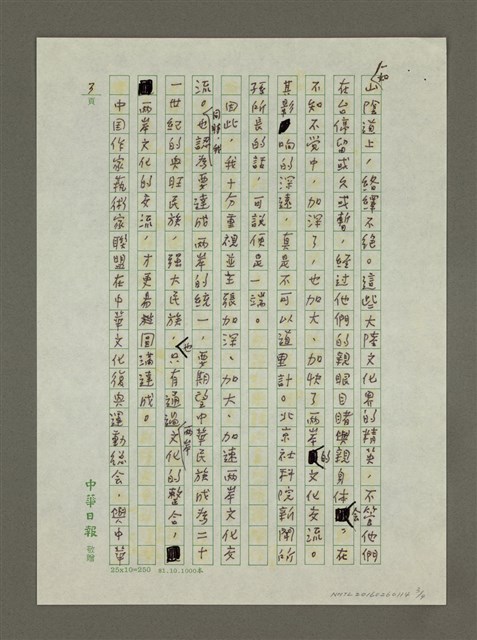 如山陰道上，絡繹不絕。這些大陸文化界的精英，不管他們
在台停留或久或暫，經過他們的親眼目睹與親身體會，在
不知不覺中，加深了，也加大、加快了兩岸的文化交流。
其影響的深遠，真是不可以道里計。北京社科院新聞所
孫所長的話，可說便是一端。
因此，我十分重視並主張加深、加大、加速兩岸文化交
流。同時，我也認為要達成兩岸的統一，要期望中華民族成為二十
一世紀的興旺民族，強大民族，只有通過兩岸文化的整合，
兩岸文化的交流，才更易圓滿達成。
中国作家藝術家聯盟在中華文化復興運動總會，與中華
3頁
中華日報 敬贈
25x10=250 81.10.1000本
NMTL20160260114 3/9